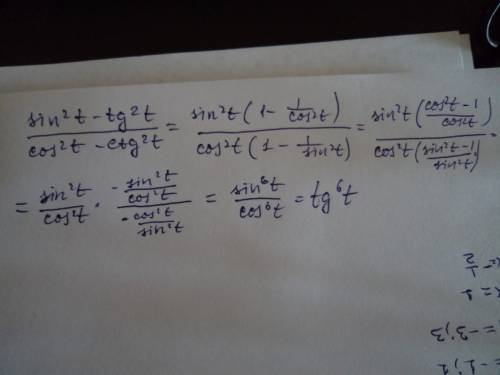 (sin²t - tg²t)/(cos²t - ctg²t) = (sin²t (1 - 1/cos²t))/(cos²t (1 - 1/sin²t)) = (sin²t ((cos²t - 1)/cos²t))/(cos²t ((sin²t - 1)/sin²t)) =
= sin²t/cos²t · (-sin²t/cos²t)/(-cos²t/sin²t) = sin⁶t/cos⁶t = tg⁶t